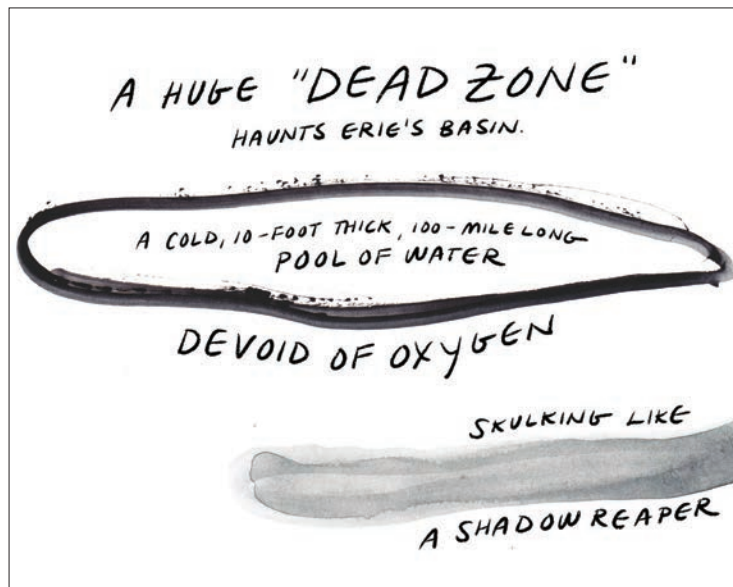 A HUGE "DEAD ZONE"
HAUNTS ERIE'S BASIN.
A COLD, 10-FOOT THICK, 100-MILE LONG
POOL OF WATER
DEVOID OF OXYGEN
SKULKING LIKE
A SHADOW REAPER